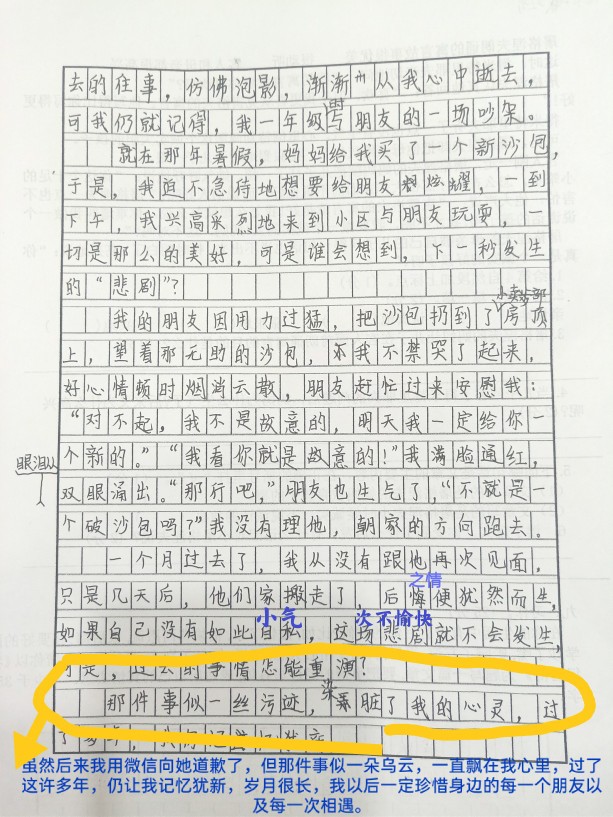 去的往事，仿佛泡影，渐渐从我心中逝去，
可我仍就记得，我一年级时与朋友的一场吵架。
就在那年暑假，妈妈给我买了一个新沙包，
于是，我迫不急待地想要给朋友炫耀，一到
下午，我兴高采烈地来到小区与朋友玩耍，一
切是那么的美好，可是谁会想到，下一秒发生
的“悲剧”？
小卖部
我的朋友因用力过猛，把沙包扔到了房顶
上，望着那无助的沙包，我不禁哭了起来，
好心情顿时烟消云散，朋友赶忙过来安慰我：
“对不起，我不是故意的，明天我一定给你一
个新的。”“我看你就是故意的！”我满脸通红，
眼泪从
双眼涌出。“那行吧，”朋友也生气了，“不就是一
个破沙包吗？”我没有理他，朝家的方向跑去。
一个月过去了，我从没有跟他再次见面，
之情
只是几天后，他们家搬走了，后悔便犹然而生，
小气 次不愉快
如果自己没有如此自私，这场悲剧就不会发生，
可是，过去的事情怎能重演？
那件事似一丝污迹，染脏了我的心灵，过
虽然后来我用微信向她道歉了，但那件事似一朵乌云，一直飘在我心里，过了
这许多年，仍让我记忆犹新，岁月很长，我以后一定珍惜身边的每一个朋友以
及每一次相遇。